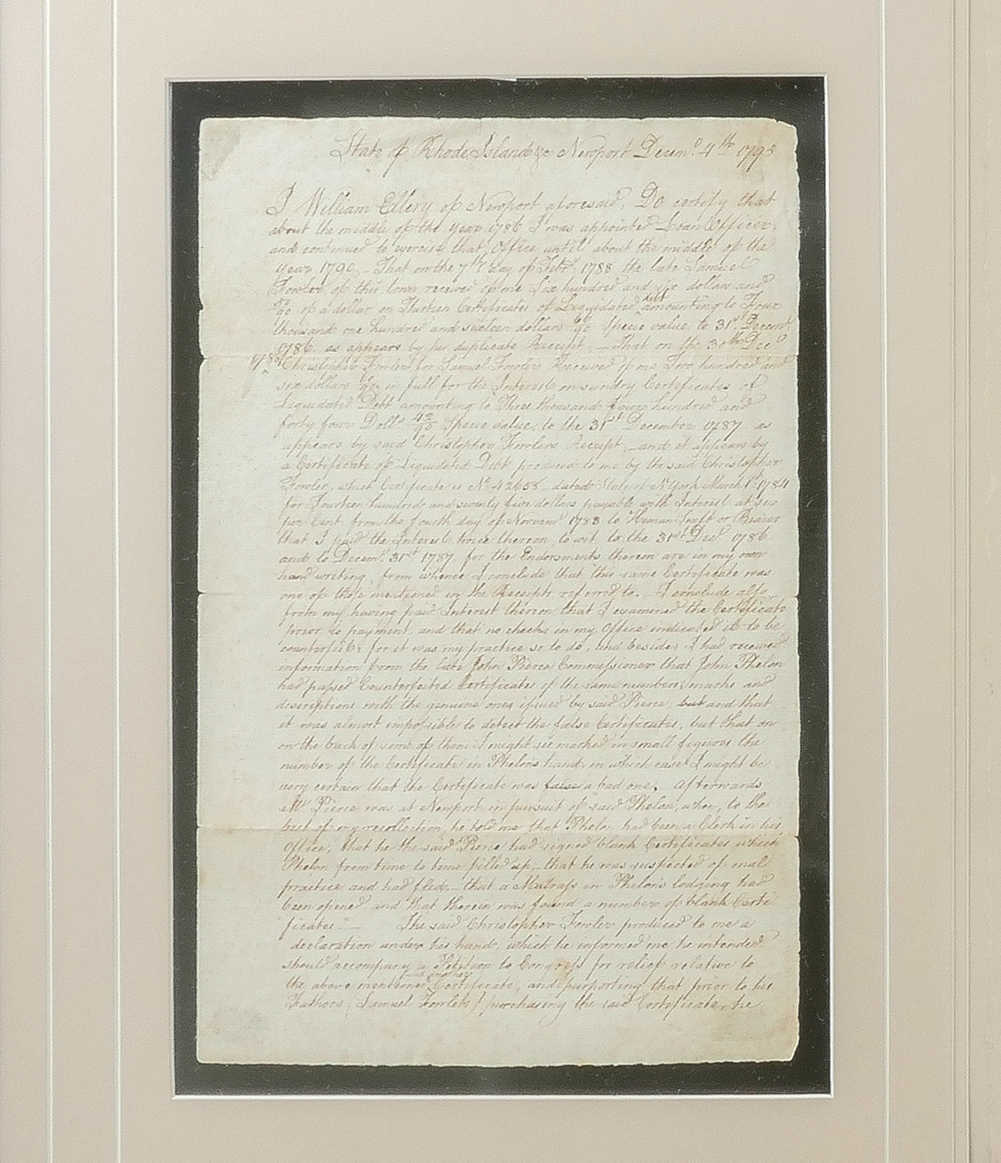 State of Rhode Island &c Newport Decem.r 4th
I William Ellery of Newport aforesaid, Do certify that
about the middle of the year 1786 I was appointed Loan Officer
and continued to exercise that Office until about the middle of the
year 1790,– That on the 7th day of Feb.r 1788 the late Samuel
Fowler of this town received of me Six hundred and six dollars and
of a dollar on Thirteen Certificates of Liquidated debt amounting to Four
thousand one hundred and sixteen dollars Specie value to 31st Decem.r
1786 as appears by his duplicate Receipt.— That on the 30th Dec.r
Christopher Fowler for Samuel Fowler Received of me Two hundred and
six dollars in full for the Interest on sundry Certificates of
Liquidated Debt amounting to Three thousand four hundred and
forty four Doll.s 42/90 Specie value, to the 31st December 1787 as
appears by said Christopher Fowlers Receipt,– and it appears by
a Certificate of Liquidated Debt produced to me by the said Christopher
Fowler, which Certificate is No. 42658 dated State of N. York March 1st 1784
for Fourteen hundred and seventy five dollars payable with Interest at six
per Cent. from the fourth day of Novem.r 1783 to Heman Swift or Bearer
that I paid the Interest twice thereon, to wit to the 31st Dec.r 1786
and to Decem.r 31st 1787 for the Endorsments thereon are in my own
hand writing, from whence I conclude that this same Certificate was
one of those mentioned in the Receipts referred to.– I conclude also
from my having paid Interest thereon that I examined the Certificate
prior to payment, and that no checks in my Office indicated it to be
counterfeit; for it was my practice so to do, and besides I had received
information from the late John Pierce Commissioner that John Phelon
had passed Counterfeited Certificates of the same numbers, marks and
descriptions with the genuine ones issued by said Pierce, but and that
it was almost impossible to detect the false Certificates, but that on
on the back of some of them I might see marked in small figures the
number of the Certificate in Phelon's hand, in which case I might be
very certain that the Certificate was false a bad one. Afterwards
Mr. Pierce was at Newport in pursuit of said Phelon, when, to the
best of my recollection, he told me that Phelon had been a Clerk in his
Office, that he the said Pierce had signed blank Certificates which
Phelon from time to time filled up,– that he was suspected of mal
practice and had fled,– that a Matrass in Phelon's lodging had
been opened and that therein was found a number of blank Certi-
ficates."— The said Christopher Fowler produced to me a
declaration under his hand, which he informed me he intended
should accompany a Petition to Congress for relief relative to
the above mentioned and another Certificate, and purporting that prior to his
Fathers (Samuel Fowlers) purchasing the said Certificate, he